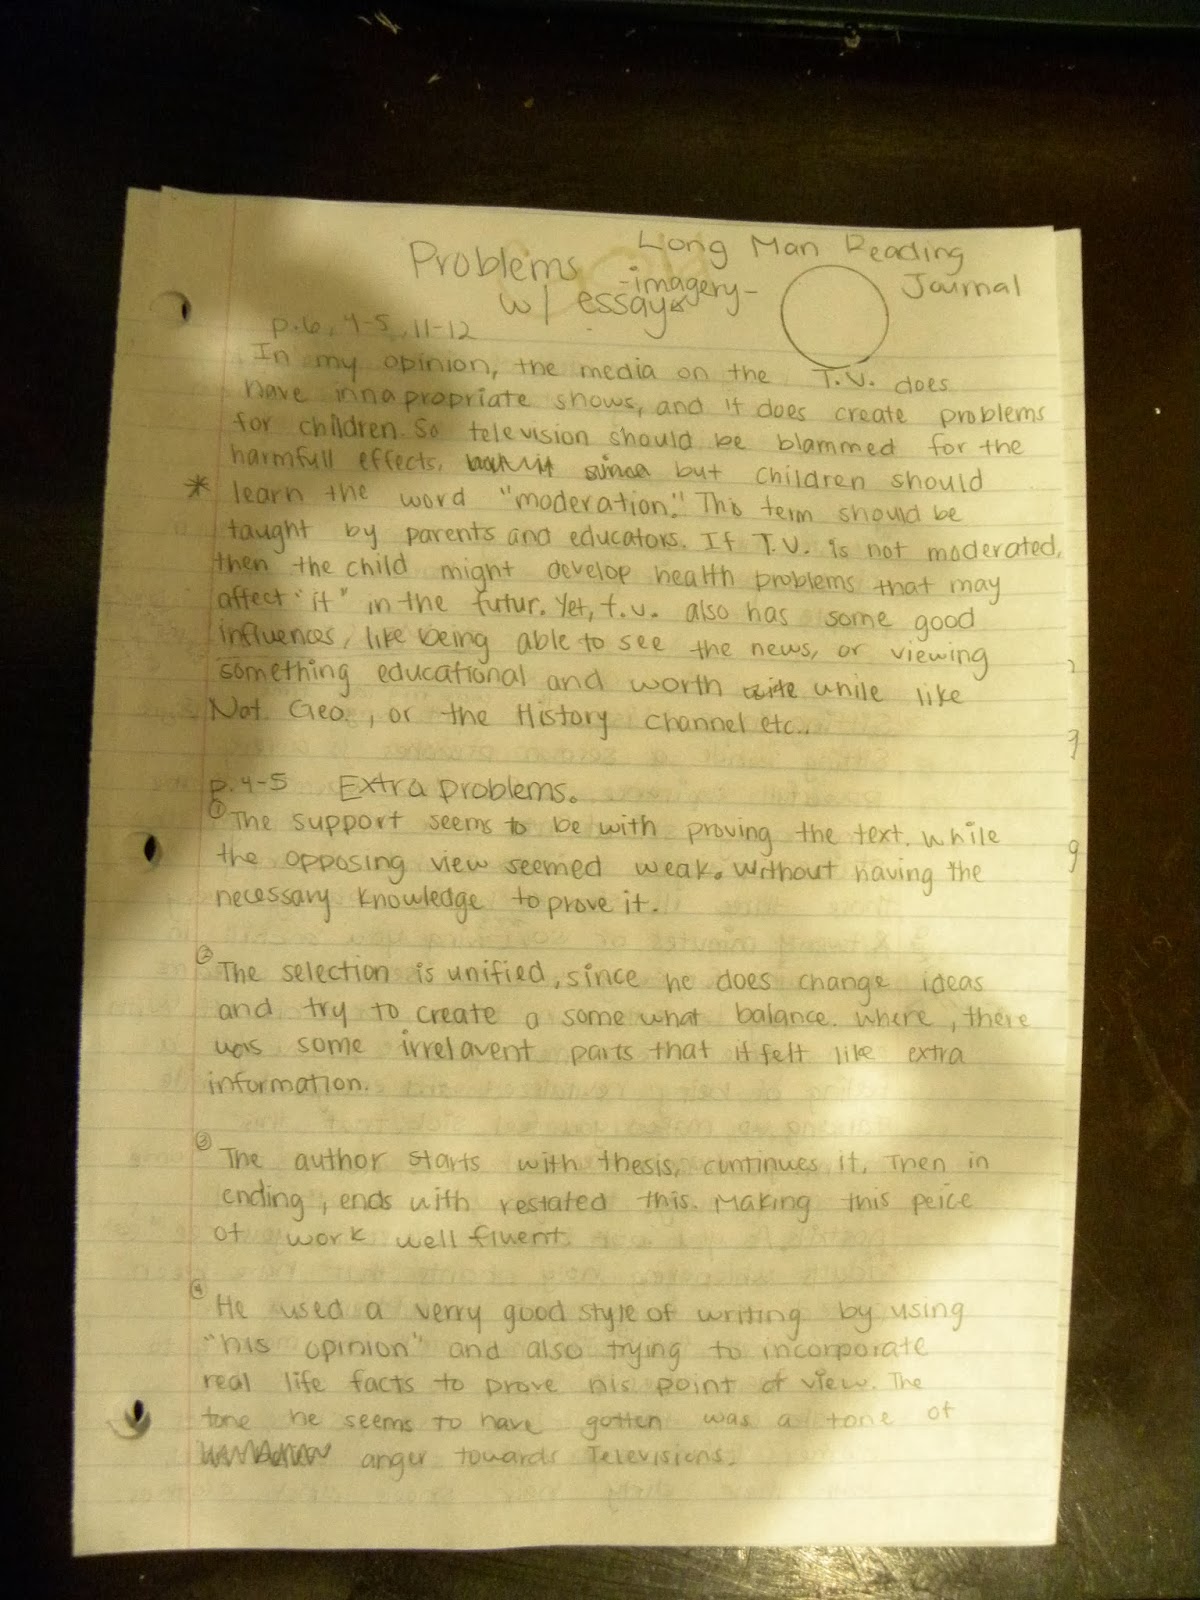 Long Man Reading
Journal
Problems
-imagery-
w/ essay
p.6, 4-5, 11-12
In my opinion, the media on the T.V. does
have innapropriate shows, and it does create problems
for children. So television should be blammed for the
harmfull effects, but children should
* learn the word "moderation." This term should be
taught by parents and educators. If T.V. is not moderated,
then the child might develop health problems that may
affect "it" in the futur. Yet, t.v. also has some good
influences, like being able to see the news, or viewing
something educational and worth while like
Nat. Geo., or the History channel etc..
p.4-5 Extra problems.
① The support seems to be with proving the text. While
the opposing view seemed weak. Without having the
necessary knowledge to prove it.
② The selection is unified, since he does change ideas
and try to create a some what balance. Where, there
was some irrelavent parts that it felt like extra
information.
③ The author starts with thesis, continues it. Then in
ending, ends with restated this. Making this peice
of work well fluent.
④ He used a verry good style of writing by using
"his opinion" and also trying to incorporate
real life facts to prove his point of view. The
tone he seems to have gotten was a tone of
anger towards Televisions.